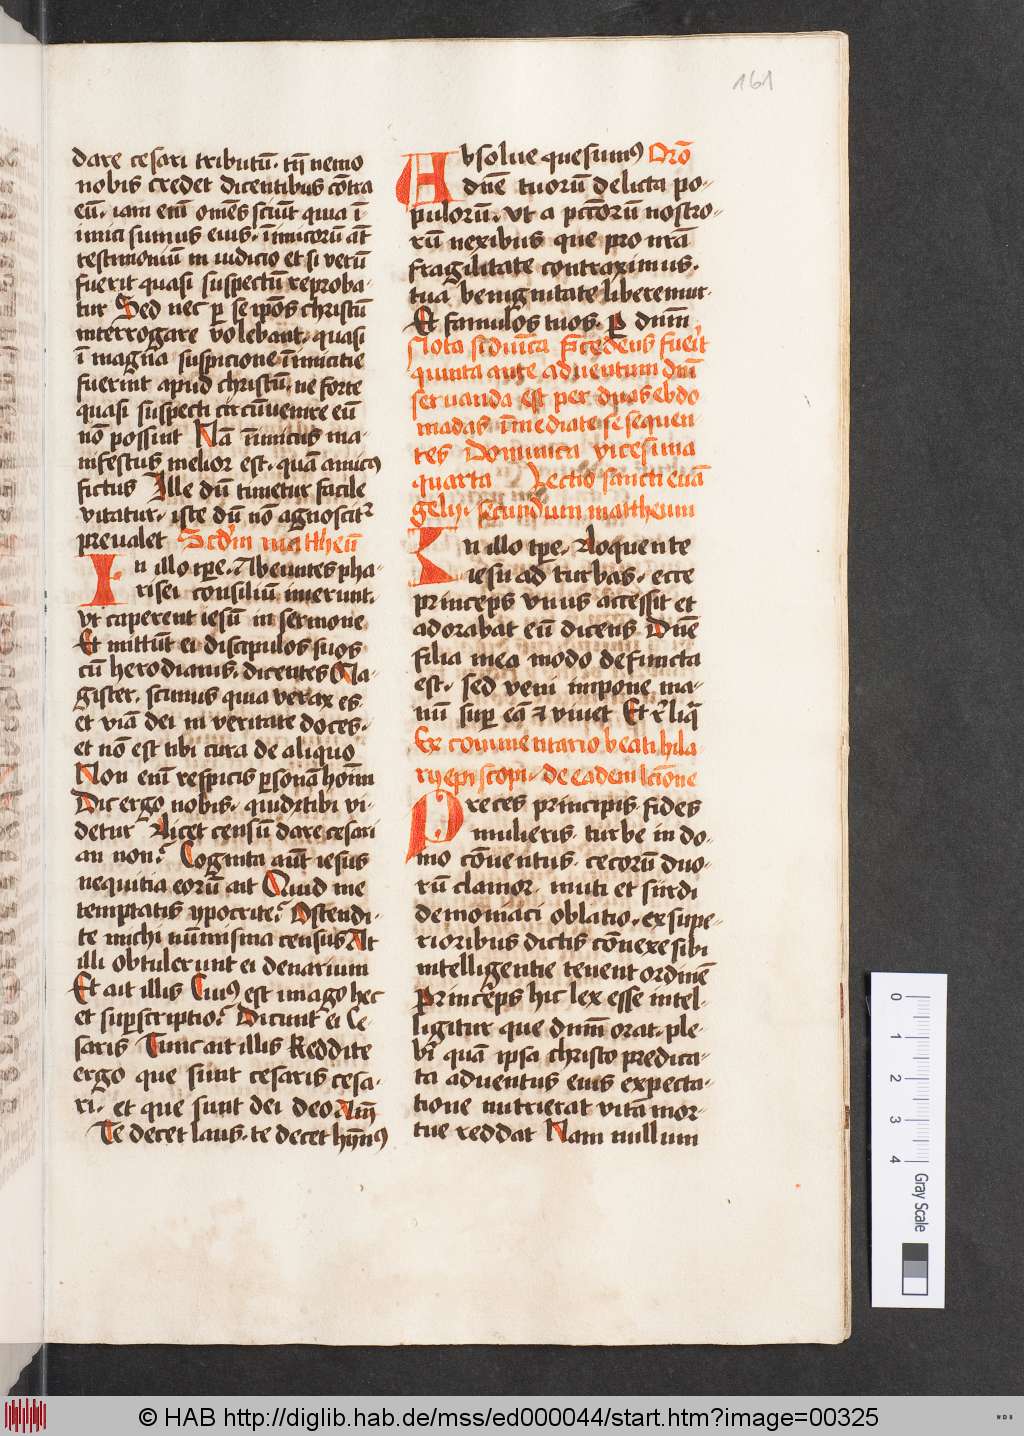 161
dare cesari tributū. tn̄ nemo
nobis credet dicentibus cōtra
eū. iam enī omēs sciūt quia ī
imici sumus eius. īimicorū aūt
testimoniū in iudicio et si verū
fuerit quasi suspectū reproba-
tur Sed nec per se ip̄os christū
interrogare volebant. quasi
ī magna suspicione īimicitie
fuerint apud christū. ne forte
quasi suspecti circūvenire eū
nō possint Nā īimicus ma-
nifestus melior est. quā amicꝰ
fictus Ille dū timetur facile
vitatur. iste dū nō agnoscitᷣ
preualet Scd'm mattheū
In illo tp̄e. Abeuntes pha-
risei consiliū inierunt.
vt caperent iesū in sermone
Et mittūt ei discipulos suos
cū herodianis. dicentes Ma-
gister. scimus quia verax es.
et viā dei in veritate doces.
et nō est tibi cura de aliquo
Non enī respicis ꝑsonā hoīm
Dic ergo nobis. quid tibi vi-
detur Licet censū dare cesari
an non? Cognita aūt iesus
nequitia eorū ait Quid me
temptatis ypocrite? Ostendi-
te michi nūmisma census At
illi obtulerunt ei denarium
Et ait illis Cuiꝰ est imago hec
et suꝑscriptio? Dicunt ei Ce-
saris Tunc ait illis Reddite
ergo que sunt cesaris cesa-
ri. et que sunt dei deo Am̄
Te decet laus. te decet hym̄nꝰ
Absolue quesumꝰ Orō
dn̄e tuorū delicta po-
pulorū. vt a pctōrū nostro-
rū nexibus que pro nr̄a
fragilitate contraximus.
tua benignitate liberemur.
Et famulos tuos. ꝑ dnm̄
quinta ante aduentum dnī
seruanda est per duas ebdo
madas īmediate se sequen-
tes Dominica vicesima
quarta Lectio sancti euā
gelij. secundum mattheum
In illo tp̄e. Loquente
iesu ad turbas. ecce
princeps vnus accessit et
adorabat eū dicens Dn̄e
filia mea modo defuncta
est. sed veni impone ma-
nū suꝑ eā ⁊ viuet Et rl̄iq̄
Ex commentario beati hila-
rij episcopi. de eadem lc̄ione
Preces principis. fides
mulieris. turbe in do-
mo cōuentus. cecorū duo-
rū clamor. muti et surdi
demoniaci oblatio. ex supe-
rioribus dictis cōnexe sibi
intelligentie tenent ordinē
Princeps hic lex esse intel-
ligitur que dnm̄ orat. ple-
bī quā ipsa christo predica-
ta aduentus eius expecta-
tione nutrierat vitā mor-
tue reddat Nam nullum
0 1 2 3 4
Gray Scale
© HAB http://diglib.hab.de/mss/ed000044/start.htm?image=00325